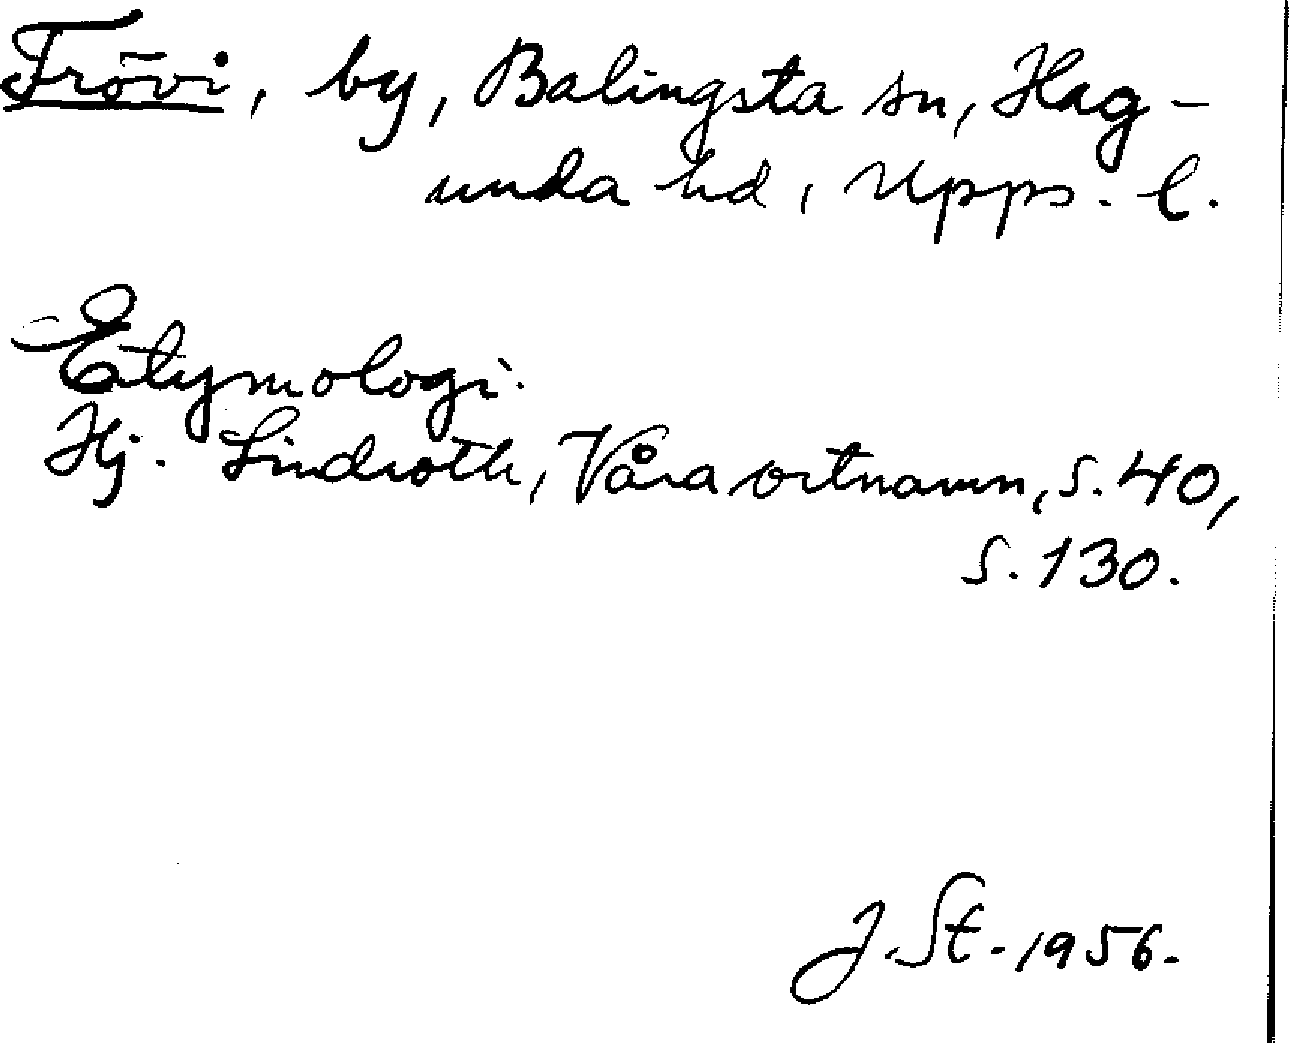 Frövi, by, Balingsta sn, Hag-
unda hd, Upps. l.
Etymologi.
Hj. Lindroth, Våra ortnamn, s. 40,
s. 130.
J. St. 1956.